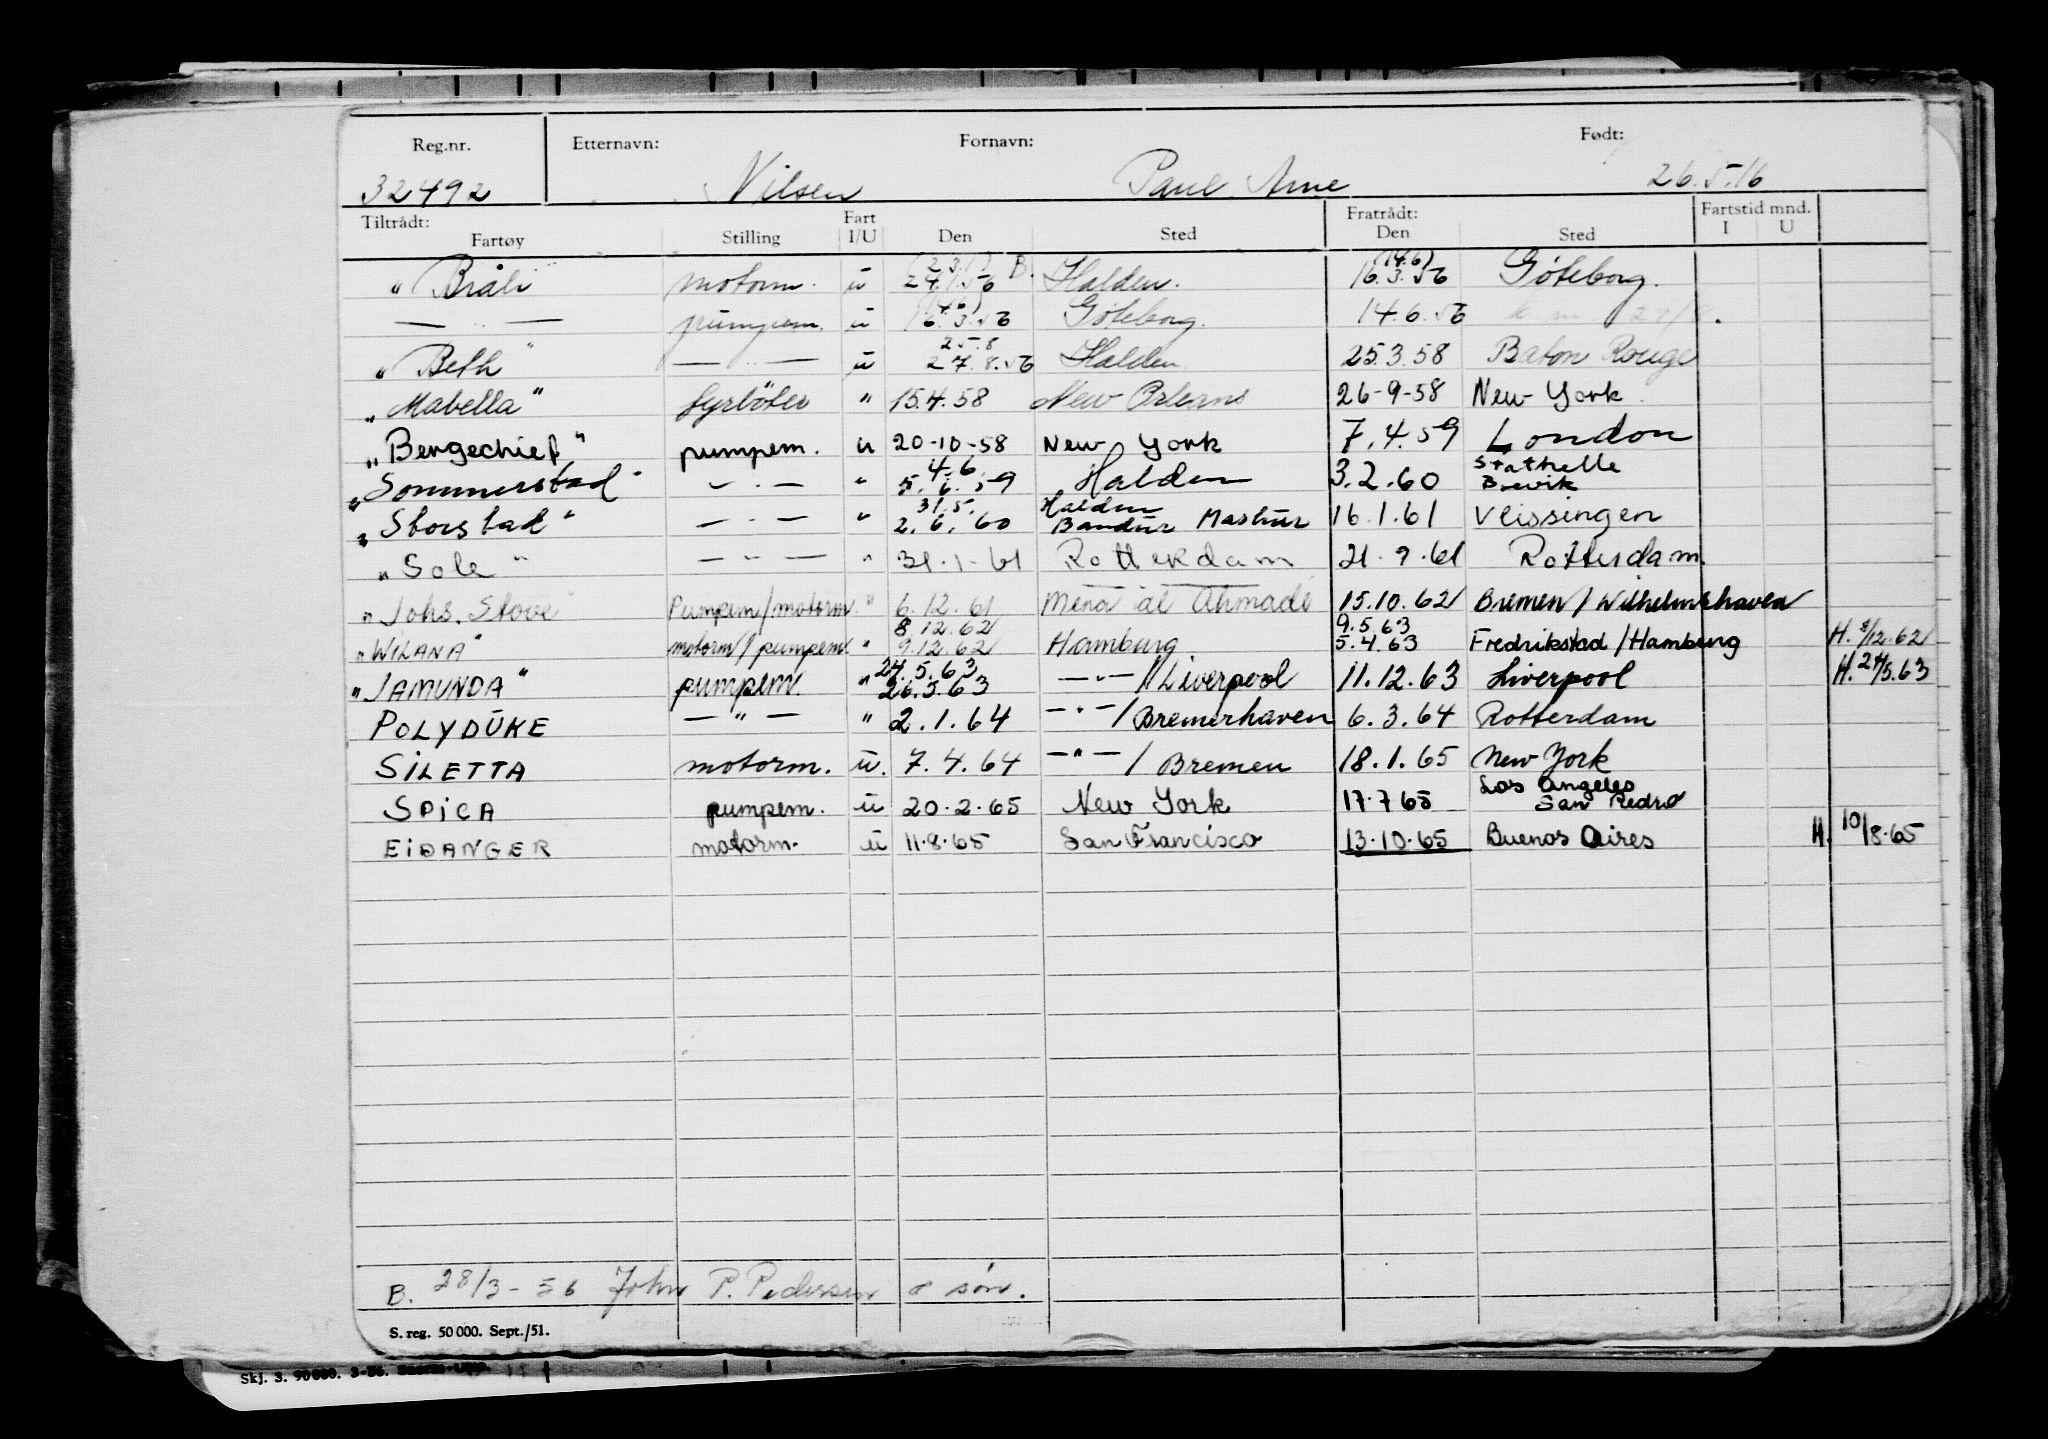 Reg.nr. Etternavn: Fornavn: Født:
32492 Nilsen Paul Arne 26.5.16
Tiltrådt: Fart Fratrådt: Fartstid mnd.
Fartøy Stilling I/U Den Sted Den Sted I U
(14.6)
„ Bråli " motorm. ü 24.1.56 B. Halden. 16.3.56 Göteborg.
— " — pumpem. ü 16.3.56 Göteborg. 14.6.56
25.8
„ Beth " — " — ü 27.8.56 Halden 25.3.58 Baton Rouge
„ Mabella " fyrböter " 15.4.58 New Orleans 26-9-58 New York.
„ Bergechief " pumpem. u 20-10-58 New York 7.4.59 London
4.6 Stathelle
„ Sommerstad " — " — " 5.6.59 Halden 3.2.60 Brevik
31.5. Halden
„ Storstad " — " — " 2.6.60 Bandür Mashür 16.1.61 Vlissingen
„ Sole " — " — " 31.1-61 Rotterdam 21.9.61 Rotterdam.
„ Johs. Stove " Pumpem/motorm. " 6.12.61 Mena al Ahmadi 15.10.62 Bremen/Wilhelmshaven
8.12.62 9.5.63
„ WILANA " motorm/pumpem. " 9.12.62 Hamburg. 5.4.63 Fredrikstad/Hamburg H. 8/12.62
24.5.63
„ JAMUNDA " pumpem. " 26.5.63 — " — / Liverpool 11.12.63 Liverpool H. 24/5.63
POLYDÜKE — " — " 2.1.64 — " — / Bremerhaven 6.3.64 Rotterdam
SILETTA motorm. ü. 7.4.64 — " — / Bremen 18.1.65 New York
Los Angeles
SPICA pumpem. ü 20.2.65 New York 17.7 65 San Pedro
EIDANGER motorm. ü 11.8.65 San Francisco 13.10.65 Buenos Aires H. 10/8.65
B. 28/3-56 John P. Pedersen & søn.
S. reg. 50 000. Sept./51.
Skj. 3. 90 000. 3-56.